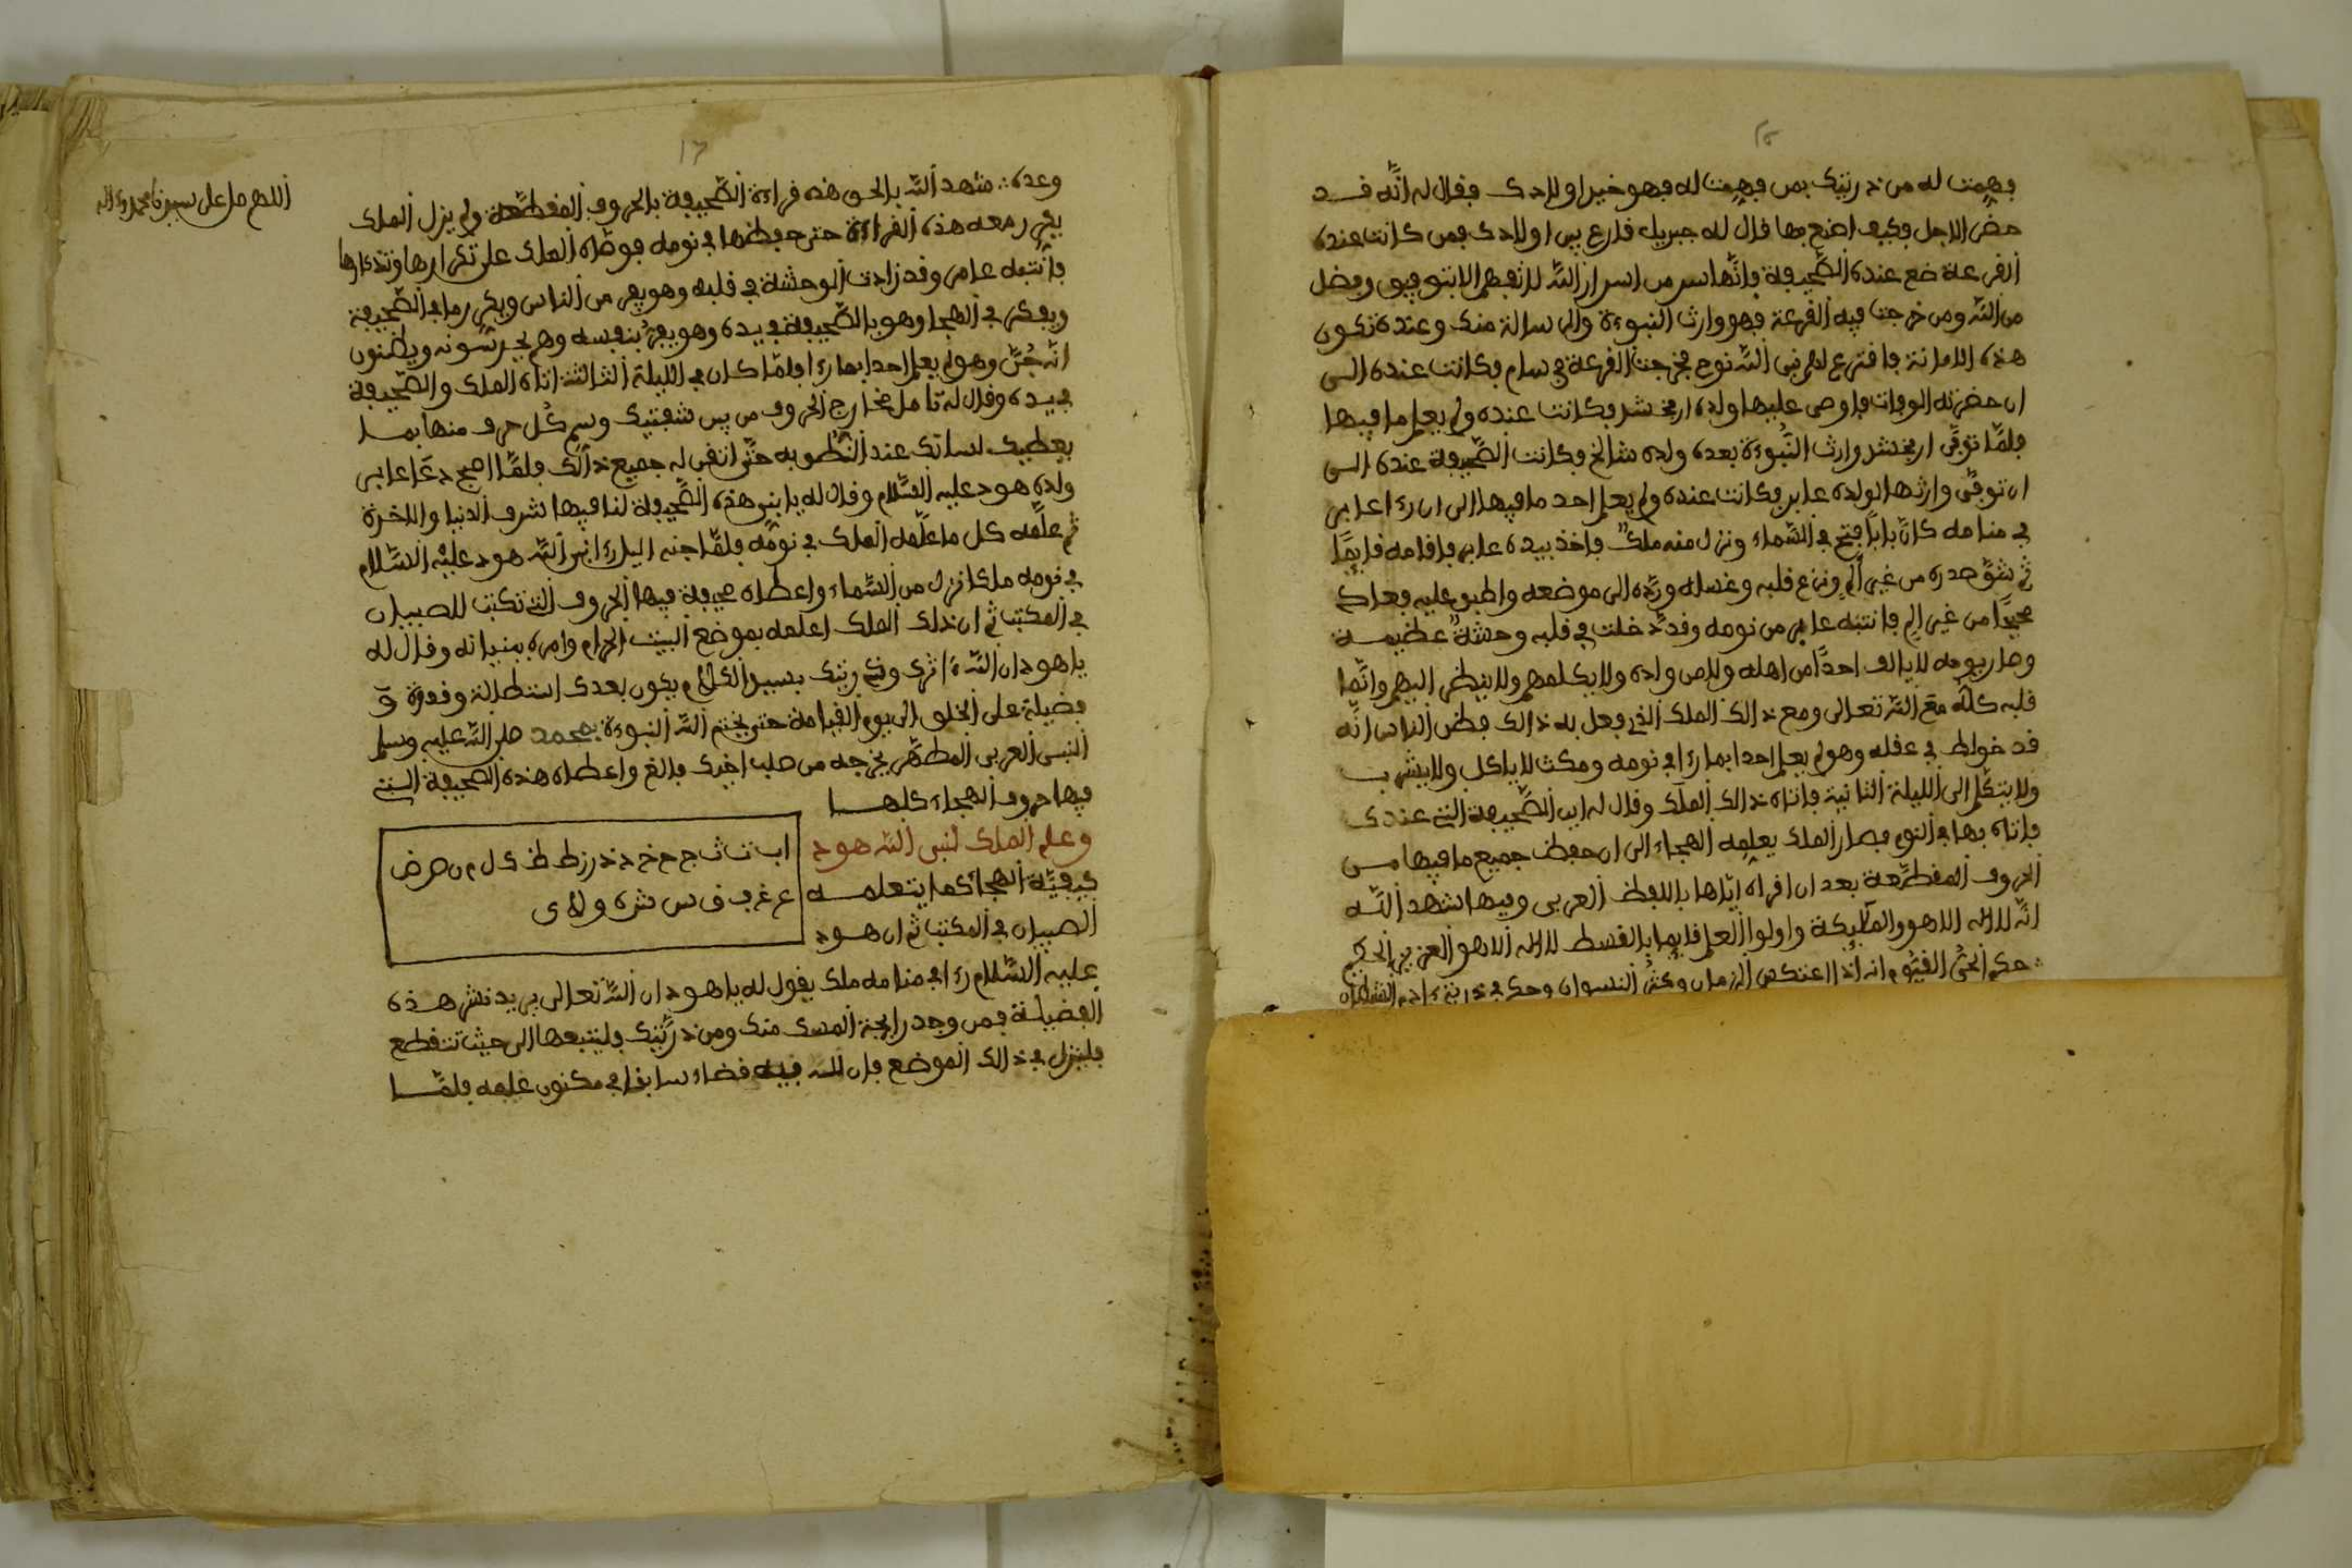 فهمت له من ذريتك بمن فهمت له فهو خير اولادك فقال له انه قد
حضر الاجل فكيف اصنع بها قال له جبريل قارع بين اولادك فمن كانت عنده
القرعة ضع عنده الصحيفة فانها سر من اسرار الله لا تفهم الا بتوفيق وفضل
من الله ومن خرجت فيه القرعة فهو وارث النبوءة والرسالة منك وعنده تكون
هذه الامانة فافترع لهم نبي الله نوح فخرجت القرعة في سام فكانت عنده الى
ان حضرته الوفات فاوصى عليها ولده ارفخشد فكانت عنده ولم يعلم ما فيها
فلما توفى ارفخشد وارث النبوءة بعده ولده شالخ فكانت الصحيفة عنده الى
ان توفى وارثها لولده عابر فكانت عنده ولم يعلم احد ما فيها الى ان رءا عابر
في منامه كان بابا فتح في السماء ونزل منه ملك فاخذ بيده عابر فاقامه قايما
ثم شق صدره من غير الم ونزع قلبه وغسله ورده الى موضعه واطبق عليه فعاد
صحيحا من غير الم فانتبه عابر من نومه وقد دخلت في قلبه وحشة عظيمة
وصار يومه لا يالف احدا من اهله ولا من ولده ولا يكلمهم ولا ينظر اليهم وانما
قلبه كله مع الله تعالى ومع ذالك الملك الذي فعل به ذالك فظن الناس انه
قد خولط في عقله وهو لم يعلم احدا بما رءا في نومه ومكث لا ياكل ولا يشرب
ولا يتكلم الى الليلة الثانية فاتاه ذالك الملك وقال له اين الصحيفة التي عندك
فاتاه بها في النوم فصار الملك يعلمه الهجاء الى ان حفظ جميع ما فيها من
الحروف المقطعة بعد ان اقراه اياها باللفظ العربي وفيها شهد الله
انه لا اله الا هو والملايكة واولوا العلم قايما بالقسط لا اله الا هو العزيز الحكيم
حكم الحي القيوم انه اذا اعتكس الزمان وكثر النسوان وحكم في ذرية ءادم الشيطان
وعده شهد الله بالحق هذه قراءة الصحيفة بالحروف المقطعة ولم يزل الملك
يقرر معه هذه القراءة حتى حفظها في نومه فوصاه الملك على تكرارها وتذكارها
فانتبه عابر وقد زادت الوحشة في قلبه وهو يفر من الناس ويكرر ما في الصحيفة
ويفكر في الهجا وهو بالصحيفة في يده وهو يقرا بنفسه وهم يحرسونه ويظنون
انه جن وهو لم يعلم احدا بما رءا فلما كان في الليلة الثالثة اتاه الملك والصحيفة
في يده وقال له تامل مخارج الحروف من بين شفتيك وسم كل حرف منها بما
يعطيك لسانك عند النطق به حتى اتقن له جميع ذالك فلما اصبح دعا عابر
ولده هود عليه السلام وقال له يا بني هذه الصحيفة لنا فيها شرف الدنيا والاخرة
ثم علمه كل ما علمه الملك في نومه فلما جنه اليل رءا نبي الله هود عليه السلام
في نومه ملكا نزل من السماء واعطاه صحيفة فيها الحروف التي تكتب للصبيان
في المكتب ثم ان ذلك الملك اعلمه بموضع البيت الحرام وامره ببنيانه وقال له
يا هود ان الله ءاثرك وذريتك بسير الكلام يكون بعدك استطالة وقدرة و
فضيلة على الخلق الى يوم القيامة حتى يختم الله النبوءة بمحمد صلى الله عليه وسلم
النبي العربي المطهر يخرجه من صلب اخيك فالغ واعطاه هذه الصحيفة التي
فيها حروف الهجاء كلها
وعلم الملك لنبي الله هود
كيفية الهجاء كما يتعلمه
الصبيان في المكتب ثم ان هود
ا ب ت ث ج ح خ د ذ ر ز ط ظ ك ل م ن ص ض
ع غ ف ق س ش ه و لا ي
عليه السلام رءا في منامه ملك يقول له يا هود ان الله تعالى يريد نشر هذه
الفضيلة فمن وجد رايحة المسك منك ومن ذريتك فليتبعها الى حيث تنقطع
فلينزل في ذالك الموضع فان لله فيه قضاء سابقا في مكنون علمه فلما
اللهم صل على سيدنا محمد وءاله